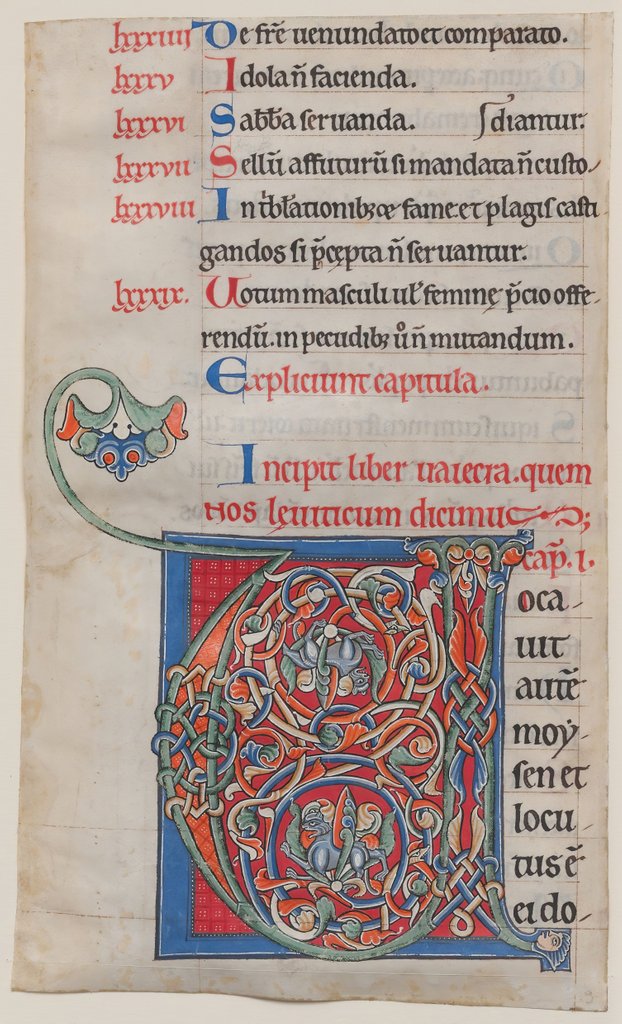 lxxxiiii De fr̄e uenundato et comparato.
lxxxv Idola n̄ facienda.
lxxxvi Sabb̄a seruanda. diantur.
lxxxvii Bellū affuturū si mandata n̄ custo-
lxxxviii In t̄blationibꝫ fame et plagis casti
gandos si p̄cępta n̄ seruantur.
lxxxix. Uotum masculi ul̄ feminę p̄cio offe-
rendū. in pecudibꝫ ů n̄ mutandum.
Expliciunt capitula.
Incipit liber uaiecra. quem
nos leuiticum dicimus;
cap̄. i.
Uoca-
uit
autē
moẏ-
sen et
locu-
tus ē
ei do-